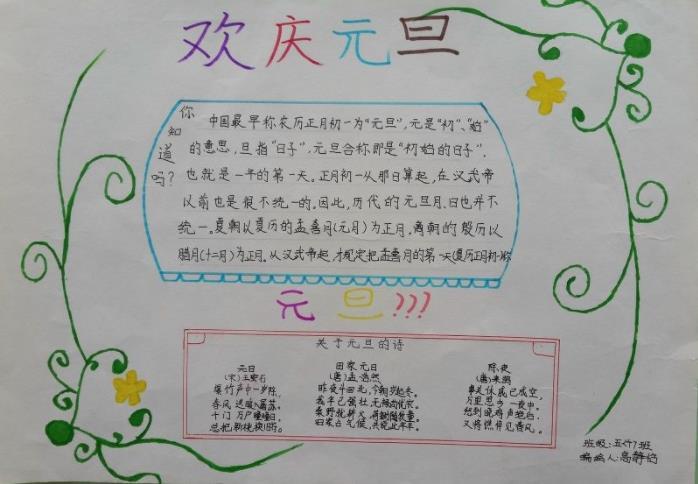 欢庆元旦
你知道吗?
中国最早称农历正月初一为“元旦”,元是“初”、“始”
的意思,旦指“日子”,元旦合称即是“初始的日子”,
也就是一年的第一天。正月初一从那日算起,在汉武帝
以前也是很不统一的。因此,历代的元旦月、日也并不
统一。夏朝以夏历的孟喜月(元月)为正月。商朝的殷历以
腊月(十二月)为正月。从汉武帝起,才规定把孟喜月的第一天(夏历正月初一)
元旦???
关于元旦的诗
元日
(宋)王安石
爆竹声中一岁除,
春风送暖入屠苏。
千门万户曈曈日,
总把新桃换旧符。
田家元日
(唐)孟浩然
昨夜斗回北,今朝岁起东。
我年已强壮,无禄尚忧农。
桑野就耕父,荷锄随牧童。
田家占气候,共说此年丰。
除夜
(唐)来鹄
事关休戚已成空,
万里思乡一夜中。
愁到晓鸡声绝后,
又将憔悴见春风。
班级:五
班
编绘人:高静